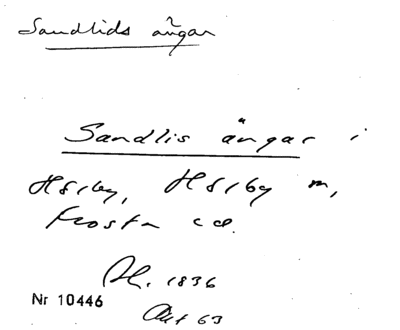 Sandlids ängar
Sandlis ängar i
Hörby, Hörby sn,
Frosta
1836
Nr 10446
Akt 63